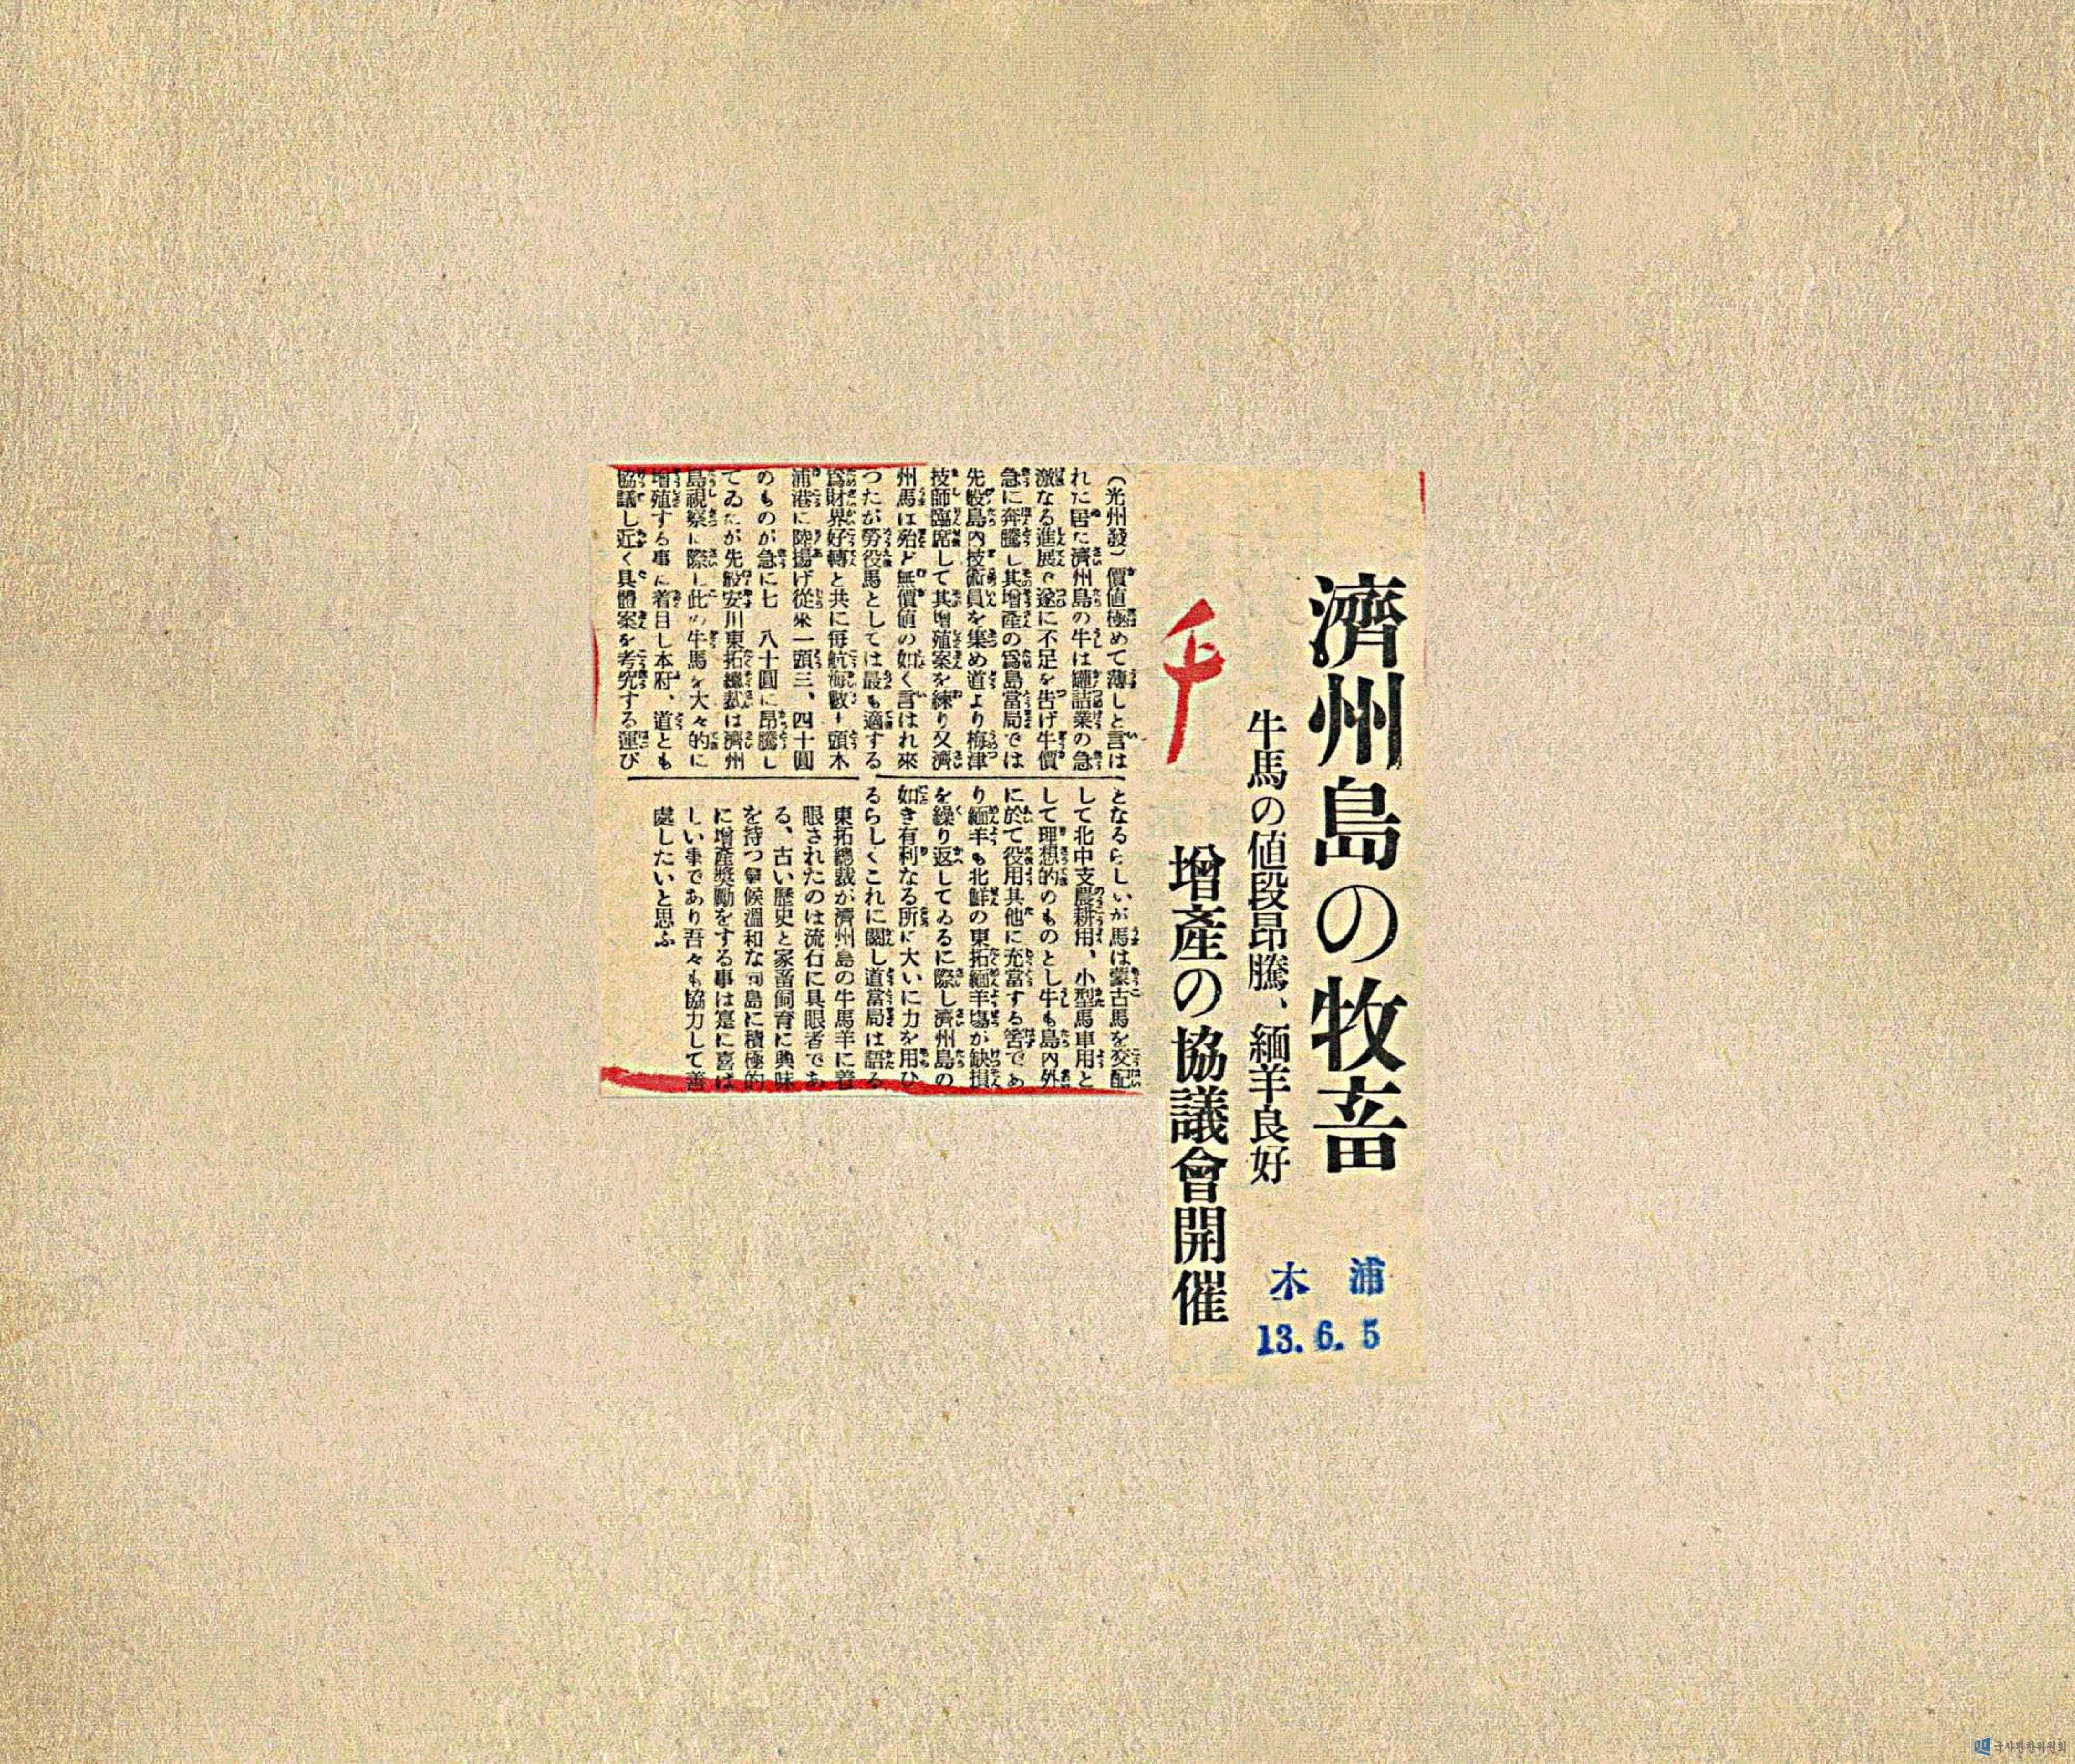 濟州島の牧畜
牛馬の値段昂騰、緬羊良好
增產の協議會開催
木浦
13.6.5
(光州發)價値極めて薄しと言は
れた居た濟州島の牛は罐詰業の急
激なる進展で遂に不足を告げ牛價
急に奔騰し其增產の爲島當局では
先般島內技術員を集め道より梅津
技師臨席して其增殖案を練り又濟
州馬は殆ど無價値の如く言はれ來
つたが勞役馬としては最も適する
爲財界好轉と共に每航海數十頭木
浦港に陸揚げ從來一頭三、四十圓
のものが急に七 八十圓に昂騰し
てゐたが先般安川東拓總裁は濟州
島視察に際し此の牛馬を大々的に
增殖する事に着目し本府、道とも
協議し近く具體案を考究する運び
となるらしいが馬は蒙古馬を交配
して北中支農耕用、小型馬車用と
して理想的のものとし牛も島內外
に於て役用其他に充當する筈であ
り緬羊も北鮮の東拓緬羊場が缺損
を繰り返してゐるに際し濟州島の
如き有利なる所に大いに力を用ひ
るらしくこれに關し道當局は語る
東拓總裁が濟州島の牛馬羊に着
眼されたのは流石に具眼者であ
る、古い歷史と家畜飼育に興味
を持つ氣候溫和な同島に積極的
に增產奬勵をする事は寔に喜ば
しい事であり吾々も協力して善
處したいと思ふ
국사편찬위원회